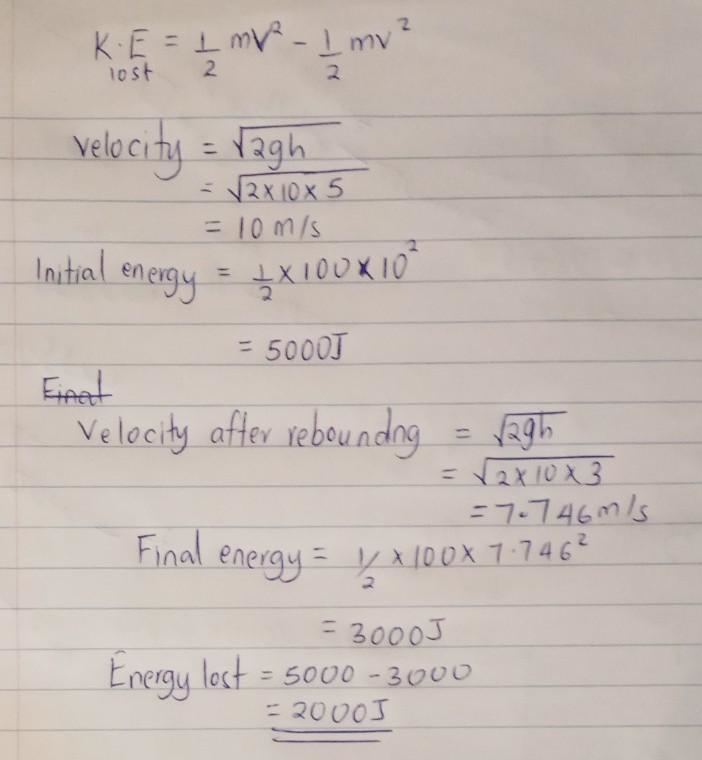 K.E = 1/2 mV² - 1/2 mv²
lost
Velocity = √2gh
= √2×10×5
= 10 m/s
Initial energy = 1/2 × 100 × 10²
= 5000J
Final
Velocity after reboundng = √2gh
= √2×10×3
= 7.746m/s
Final energy = 1/2 × 100 × 7.746²
= 3000J
Energy lost = 5000 - 3000
= 2000J